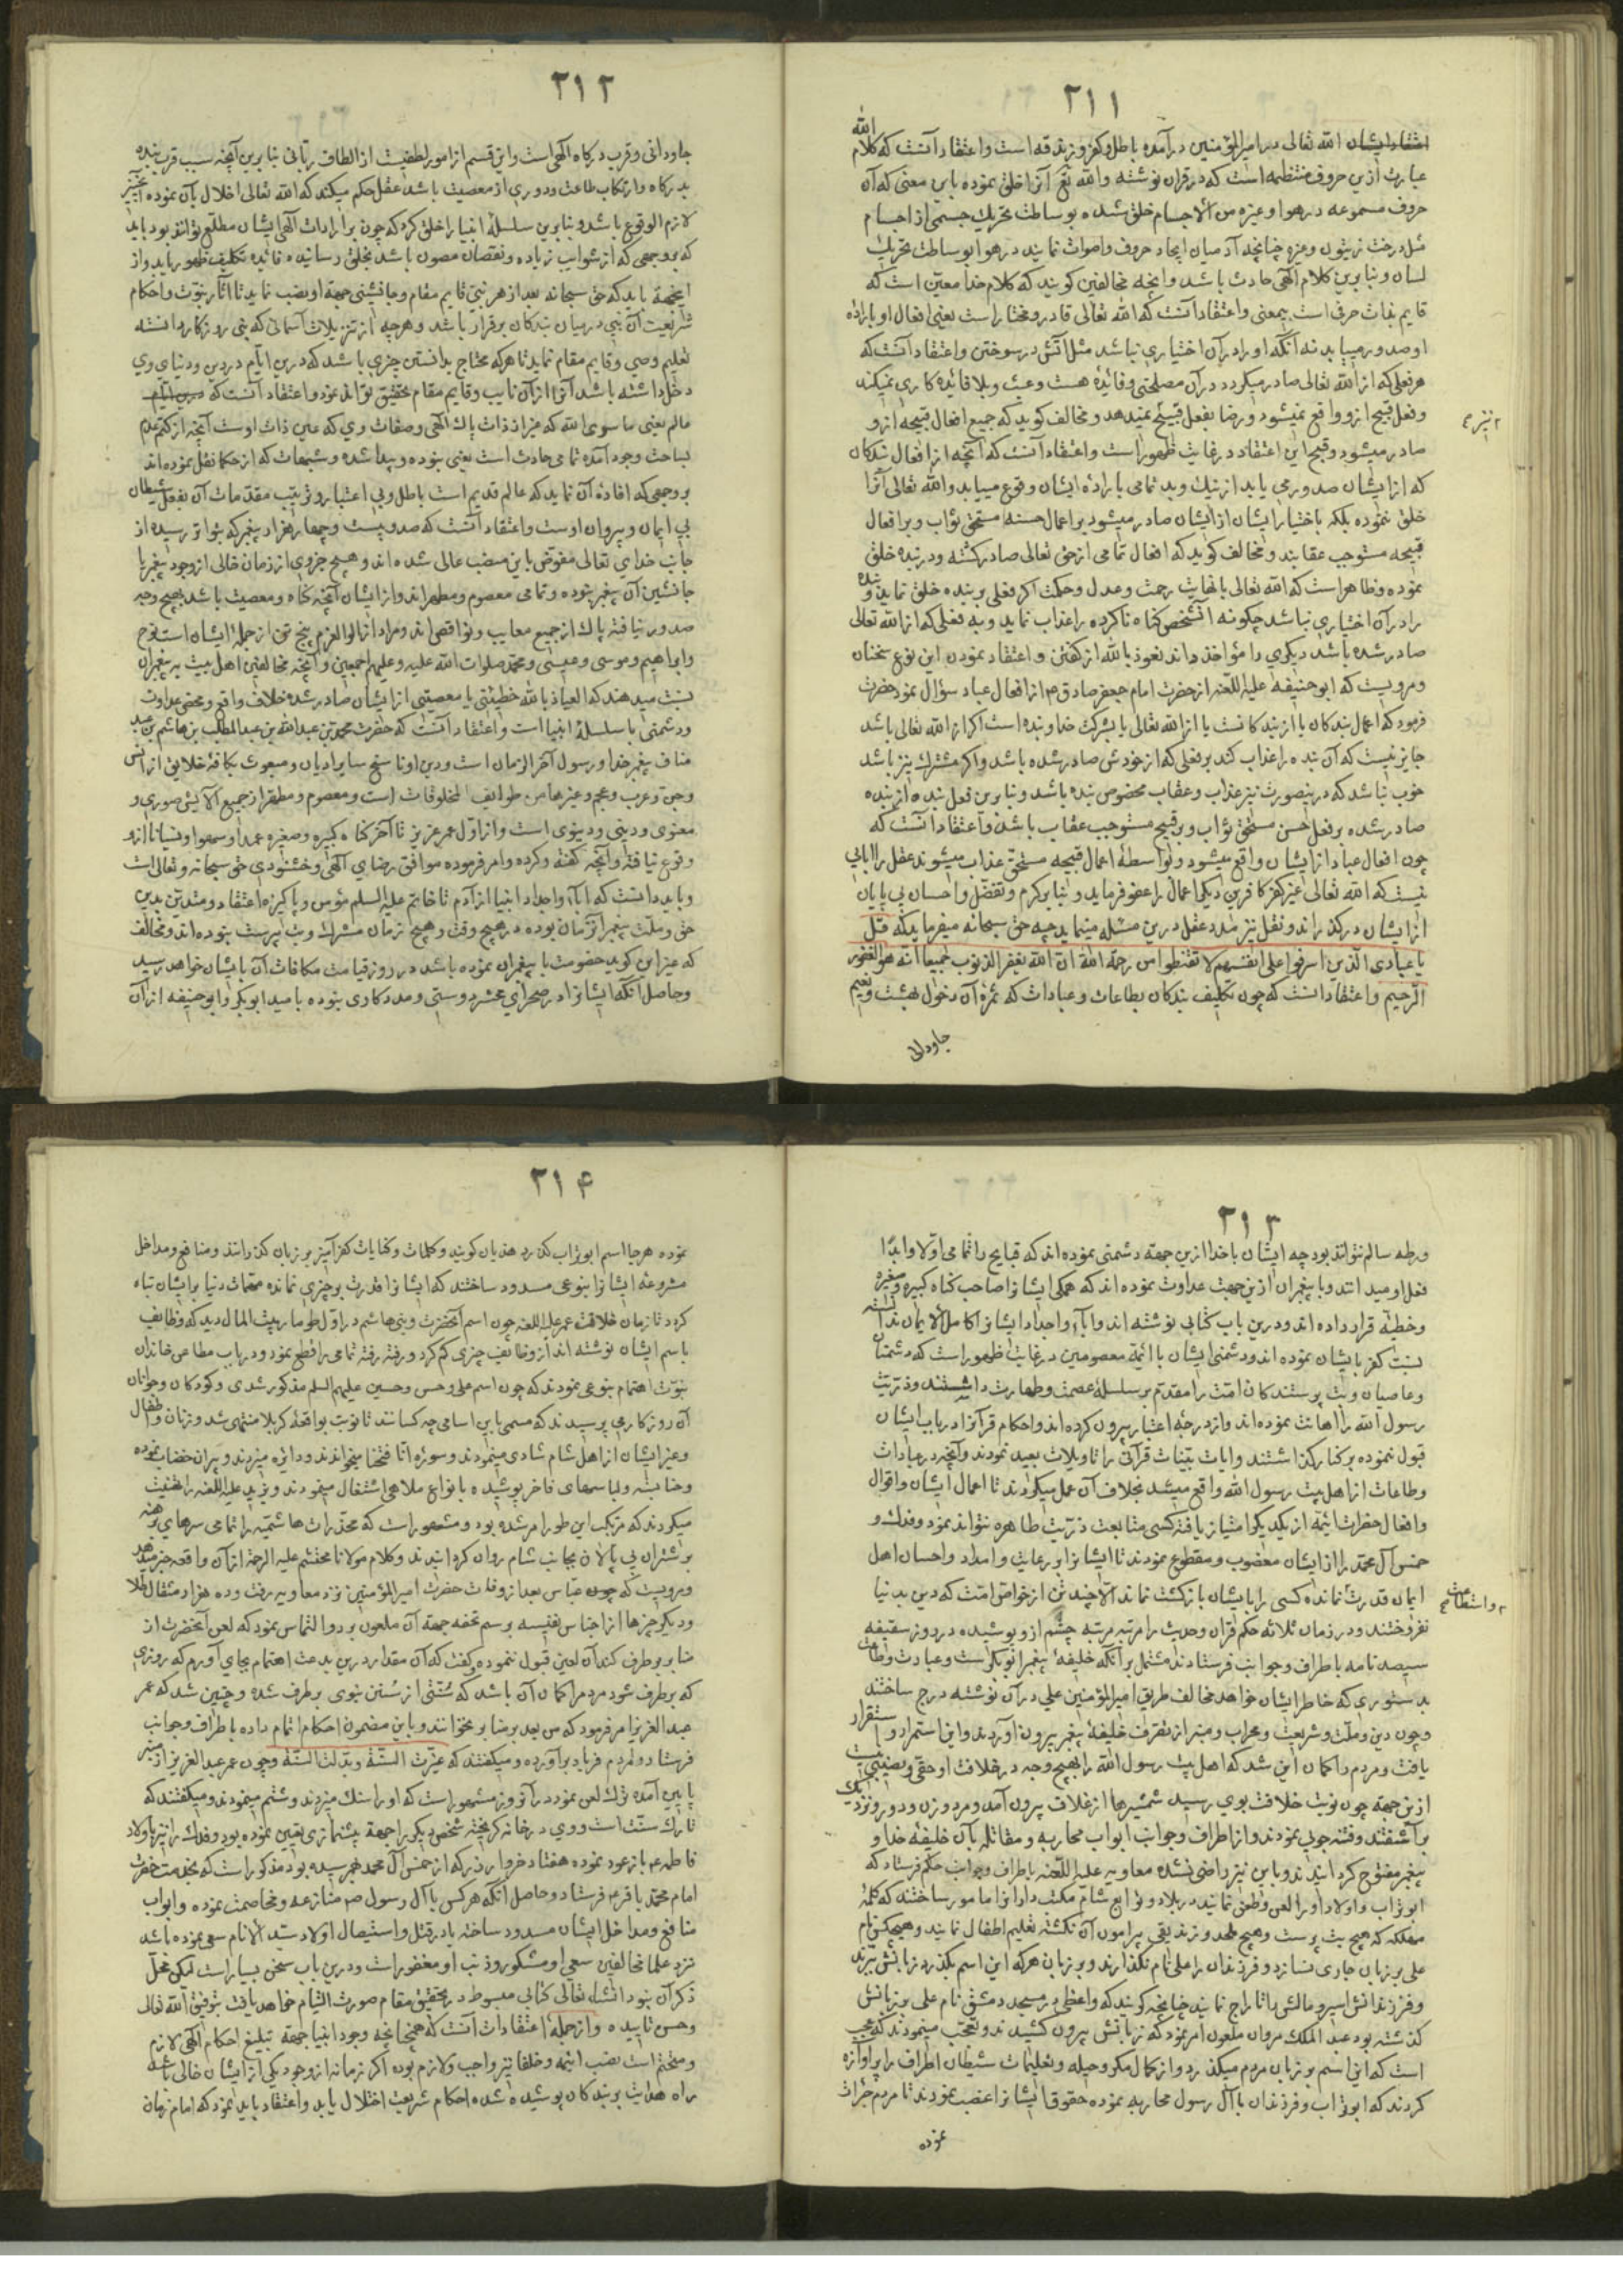 ۲۱۱
الله
اعتقاد ایشان الله تعالی در امیر المؤمنین درآمده باطل و کفر و زندقه است و اعتقاد آنست که کلام
عبارت ازین حروف منتظمه است که در قران نوشته والله تع آنرا خلق نموده باین معنی که آن
حروف مسموعه در هوا و غیره من الاجسام خلق شده بوساطت تحریک جسمی از اجسام
مثل درخت زیتون و غیره چنانچه آدمیان ایجاد حروف و اصوات نمایند در هوا بوساطت تحریک
لسان و بنابرین کلام الهی حادث باشد و انچه مخالفین کویند که کلام خدا معین است که
قایم بذات حرفی است بیمعنی و اعتقاد آنست که الله تعالی قادر و مختار است یعنی افعال او باراده
او صدور مییابد نه آنکه او را در آن اختیاری نباشد مثل آتش در سوختن و اعتقاد آنست که
هر فعلی که از الله تعالی صادر میکردد در آن مصلحتی و فائده هست و عبث و بلا فائده کاری نمیکند
و فعل قبیح ازو واقع نمیشود و رضا بفعل قبیح نمیدهد و مخالف کوید که جمیع افعال قبیحه ازو
صادر میشود و قبح این اعتقاد در غایت ظهور است و اعتقاد آنست که آنچه از افعال بندکان
که از ایشان صدور می یابد از نیک و بد تمامی باراده ایشان وقوع مییابد والله تعالی آنرا
خلق ننموده بلکه باختیار ایشان از ایشان صادر میشود بر اعمال حسنه مستحق ثواب و بر افعال
قبیحه مستوجب عقابند و مخالف کوید که افعال تمامی از حق تعالی صادر کشته و در بنده خلق
نموده و ظاهر است که الله تعالی باغایت رحمت و عدل و حکمت اکر فعلی بر بنده خلق نماید و بنده
را در آن اختیاری نباشد چکونه آنشخص کناه ناکرده را عذاب نماید و به فعلی که از الله تعالی
صادر شده باشد دیکری را مؤاخذ داند نعوذ بالله از کفتن و اعتقاد نمودن این نوع سخنان
و مرویست که ابو حنیفه علیه اللعنه از حضرت امام جعفر صادق ع از افعال عباد سؤال نمود حضرت
فرمود که اعمال بندکان یا از بند کانست یا از الله تعالی یا بشرکت خدا و بنده است اکر از الله تعالی باشد
جایز نیست که آن بنده را عذاب کند بر فعلی که از خودش صادر شده باشد و اکر مشترک نیز باشد
خوب نباشد که درینصورت نیز عذاب و عقاب مخصوص بنده باشد و بنابرین فعل بنده از بنده
صادر شده بر فعل حسن مستحق ثواب و بر قبیح مستوجب عقاب باشد و اعتقاد آنست که
چون افعال عباد از ایشان واقع میشود و بواسطهٔ اعمال قبیحه مستحق عذاب میشوند عقل را ابائی
نیست که الله تعالی غیر کفر کافرین دیکر اعمال را عفو فرماید و بنا بر کرم و تفضل و احسان بی پایان
از ایشان در کذراند و نقل نیز مدد عقل درین مسئله مینماید چه حق سبحانه میفرماید که قل
یا عبادی الذین اسرفوا علی انفسهم لا تقنطوا من رحمة الله ان الله یغفر الذنوب جمیعا انه هو الغفور
الرحیم و اعتقاد آنست که چون تکلیف بندکان بطاعات و عبادات که ثمرهٔ آن دخول بهشت و نعیم
جاودانی
نیز ع
۲۱۲
جاودانی و قرب درکاه الهی است و این قسم از امور لطفیست از الطاف ربانی بنابرین آنچه سبب قرب بنده
بدرکاه و ارتکاب طاعت و دوری از معصیت باشد عقل حکم میکند که الله تعالی اخلال بآن ننموده
لازم الوقوع باشد و بنابرین سلسلهٔ انبیا را خلق کرد که چون بر ارادات الهی ایشان مطلع توانند بود باید
که بروجهی که از شوایب زیاده و نقصان مصون باشد بخلق رسانیده فائده تکلیف ظهور یابد و از
اینجهة باید که حق سبحانه بعد از هر نبی قایم مقام و جانشینی جهة او نصب نماید تا آثار نبوت و احکام
شریعت آن نبی در میان بندکان برقرار باشد و هرچه از تنزیلات آسمانی که بنی روزکار دانسته
تعلیم وصی و قایم مقام نماید تا هر که محتاج بدانستن چیزی باشد که درین ایام در دین و دنیای وی
دخل داشته باشد آنرا از آن نایب و قایم مقام تحقیق تواند نمود و اعتقاد آنست که
عالم یعنی ما سوی الله که غیر از ذات پاک الهی و صفات وی که عین ذات اوست آنچه از کتم عدم
بساحت وجود آمده تمامی حادث است یعنی نبوده و پیدا شده و شبهات که از حکما نقل نموده اند
بروجهی که افادهٔ آن نماید که عالم قدیم است باطل و بی اعتبار و ترتیب مقدمات آن بفعل شیطان
بی ایمان و پیروان اوست و اعتقاد آنست که صد و بیست و چهار هزار پیغمبر که بتواتر رسیده از
جانب خدای تعالی مفوض باین منصب عالی شده اند و هیچ جزوی از زمان خالی از وجود پیغمبر یا
جانشین آن پیغمبر نبوده و تمامی معصوم و مطهر اند و از ایشان آنچه کناه و معصیت باشد بهیچ وجه
صدور نیافته پاک از جمیع معایب و نواقص اند و مراد از اولوا العزم پنج تن از جملهٔ ایشان است نوح
و ابراهیم و موسی و عیسی و محمد صلوات الله علیه و علیهم اجمعین و آنچه مخالفین اهل بیت به پیغمبران
نسبت میدهند که العیاذ بالله خطیئتی یا معصیتی از ایشان صادر شده خلاف واقع و محض عداوت
و دشمنی با سلسلهٔ انبیا است و اعتقاد آنست که حضرت محمد بن عبدالله بن عبدالمطلب بن هاشم بن عبد
مناف پیغمبر خدا و رسول آخر الزمان است و دین او ناسخ سایر ادیان و مبعوث بکافهٔ خلایق از انس
و جن و عرب و عجم و غیرها من طوایف المخلوقات است و معصوم و مطهر از جمیع آلایش صوری و
معنوی و دینی و دنیوی است و از اول عمر عزیز تا آخر کناه کبیره و صغیره عمدا و سهوا و نسیانا ازو
وقوع نیافته و آنچه کفته و کرده و امر فرموده موافق رضای الهی و خشنودی حق سبحانه و تعالی است
و باید دانست که آباء و اجداد انبیا از آدم تا خاتم علیه السلم مؤمن و پاکیزه اعتقاد و متدین بدین
حق و ملت پیغمبر آنزمان بوده در هیچ وقت و هیچ زمان مشرک و بت پرست نبوده اند و مخالف
که غیر این کوید خصومت با پیغمبران نموده باشد در روز قیامت مکافات آن بایشان خواهد رسید
و حاصل آنکه ایشانرا در صحرای محشر دوستی و مددکاری نبوده بامید ابوبکر و ابو حنیفه از آن
۲۱۳
ورطه سالم نتوانند بود چه ایشان با خدا ازین جهة دشمنی نموده اند که قبایح را تمامی اولا و ابدا
فعل او میدانند و با پیغمبران ازین جهت عداوت نموده اند که همکی ایشانرا صاحب کناه کبیره و صغیره
و خطیئه قرار داده اند و درین باب کتابی نوشته اند و آباء و اجداد ایشانرا کامل الایمان ندانسته
نسبت کفر بایشان نموده اند و دشمنی ایشان با ائمهٔ معصومین در غایت ظهور است که دشمنان
و عاصیان و بت پرستندکان امت را مقدم بر سلسلهٔ عصمت و طهارت داشتند و ذریت
رسول الله را اهانت نموده اند و از درجهٔ اعتبار بیرون کرده اند و احکام قرآنرا در باب ایشان
قبول ننموده بر کنار کذاشتند و ایات بینات قرآنی را تاویلات بعید نمودند و آنچه در عبادات
و طاعات از اهل بیت رسول الله واقع میشد بخلاف آن عمل میکردند تا اعمال ایشان و اقوال
و افعال حضرات ائمه از یکدیکر امتیاز یافته کسی متابعت ذریت طاهره نتواند نمود و فدک و
خمس آل محمد را از ایشان مغضوب و مقطوع نمودند تا ایشانرا بر رعایت و امداد و احسان اهل
ایمان قدرت نمانده کسی را بایشان بازکشت نماند الا چند تن از خواص امت که دین بدنیا
نفروختند و در زمان ثلاثه حکم قرآن و حدیث را مرتبه مرتبه چشم ازو پوشیده در روز سقیفه
سیصد نامه باطراف و جوانب فرستادند مشتمل بر آنکه خلیفهٔ پیغمبر ابوبکر است و عبادت و طاعت
بدستوری که خاطر ایشان خواهد مخالف طریق امیر المؤمنین علی در آن نوشته درج ساختند
و چون دین و ملت و شریعت و محراب و منبر از تصرف خلیفهٔ پیغمبر بیرون آوردند و این استمرار و استقرار
یافت و مردم را کمان این شد که اهل بیت رسول الله را بهیچ وجه در خلافت او حقی و نصیبی نیست
ازین جهة چون نوبت خلافت بوی رسید شمشیرها از غلاف بیرون آمد و مرد و زن و دور و نزدیک
بر آشفتند و فتنه جوئی نمودند و از اطراف و جوانب ابواب محاربه و مقاتله بآن خلیفهٔ خدا و
پیغمبر مفتوح کردانیدند و باین نیز راضی نشده معاویه علیه اللعنه باطراف و جوانب حکم فرستاد که
ابوتراب و اولاد او را لعن و طعن نمایند در بلاد و توابع شام مکتب دارانرا مامور ساختند که کلمهٔ
مهلکه که هیچ بت پرست و هیچ ملحد و زندیقی پیرامون آن نکشته تعلیم اطفال نمایند و هیچکس نام
علی بر زبان جاری نسازد و فرزندان را علی نام نکذارند و بر زبان هر که این اسم بکذرد زبانش ببرند
و فرزندانش اسیر و مالش را تاراج نمایند چنانچه کویند که واعظی در مسجد دمشق نام علی بر زبانش
کذشته بود عبد الملک مروان ملعون امر نمود که زبانش بیرون کشیدند و تعجب مینمودند که عجب
است که این اسم بر زبان مردم میکذرد و از کمال مکر و حیله و تعلیمات شیطان اطراف را پر آوازه
کردند که ابوتراب و فرزندان با آل رسول محاربه نموده حقوق ایشانرا غصب نمودند تا مردم جرأت
نموده
و استطاعت
۲۱۴
نموده هر جا اسم ابوتراب کذرد هذیان کویند و کلمات و کنایات کفرآمیز بر زبان کذرانند و منافع و مداخل
مشروعهٔ ایشانرا بنوعی مسدود ساختند که ایشانرا قدرت بر چیزی نمانده مهمات دنیا بر ایشان تباه
کرد تا زمان خلافت عمر علیه اللعنه چون اسم آنحضرت و بنی هاشم در اول طومار بیت المال دید که وظایف
باسم ایشان نوشته اند از وظایف چیزی کم کرد و رفته رفته تمامی را قطع نمود و در باب مطاعن خاندان
نبوت اهتمام بنوعی نمودند که چون اسم علی و حسن و حسین علیهم السلم مذکور شدی و کودکان و جوانان
آن روزکار می پرسیدند که مسمی باین اسامی چه کسانند تا نوبت بواقعهٔ کربلا منتهی شد و زنان و اطفال
و غیر ایشان از اهل شام شادی مینمودند و سورهٔ انا فتحنا میخواندند و دایره میزدند و پیران خضاب نموده
و حنا بسته و لباسهای فاخر پوشیده بانواع ملاهی اشتغال مینمودند و یزید علیه اللعنه را تهنیت
میکردند که مرتکب این طور امر شده بود و مشهور است که مخدرات هاشمیه را تمامی سرهای برهنه
بر شتران بی پالان بجانب شام روان کردانیدند و کلام مولانا محتشم علیه الرحمة از آن واقعه خبر میدهد
و مرویست که چون عباس بعد از وفات حضرت امیر المؤمنین نزد معاویه رفت و ده هزار مثقال طلا
و دیکر چیزها از اجناس نفیسه برسم تحفه جهة آن ملعون برد و التماس نمود که لعن آنحضرت از
منابر برطرف کند آن لعین قبول ننموده و کفت که آن مقدار درین بدعت اهتمام بجای آورم که روزی
که برطرف شود مردم را کمان آن باشد که سنتی از سنن نبوی برطرف شده و چنین شد که عمر
عبد العزیز امر فرمود که من بعد بر منابر نخوانند و باین مضمون احکام اتمام داده باطراف و جوانب
فرستاد و مردم فریاد برآورده و میکفتند که غیرت السنة و بدلت السنة و چون عمر عبد العزیز از منبر
پایین آمده ترک لعن نمود در آنروز مشهور است که او را سنک میزدند و شتم مینمودند و میکفتند که
تارک سنت است و وی در خانه کریخته شخص دیکر را جهة پیشنمازی تعیین نموده بود و فدک را نیز باولاد
فاطمه ع باز عود نموده هفتاد خروار زر که از خمس آل محمد بهم رسیده بود مذکور است که بخدمت حضرت
امام محمد باقر ع فرستاد و حاصل آنکه هر کس با آل رسول ص منازعه و مخاصمت نموده و ابواب
منافع و مداخل ایشان مسدود ساخته یا در قتل و استیصال اولاد سید الانام سعی نموده باشد
نزد علما مخالفین سعی او مشکور و ذنب او مغفور است و درین باب سخن بسیار است لیکن محل
ذکر آن نبود انشاء تعالی کتابی مبسوط در تحقیق مقام صورت التیام خواهد یافت بتوفیق الله تعالی
و حسن تاییده و از جملهٔ اعتقادات آنست که همچنانچه وجود انبیا جهة تبلیغ احکام الهی لازم
و متحتم است نصب ائمه و خلفا نیز واجب و لازم بود اکر زمانه از وجود یکی از ایشان خالی باشد
راه هدایت بر بندکان پوشیده شده احکام شریعت اختلال یابد و اعتقاد باید نمود که امام زمان